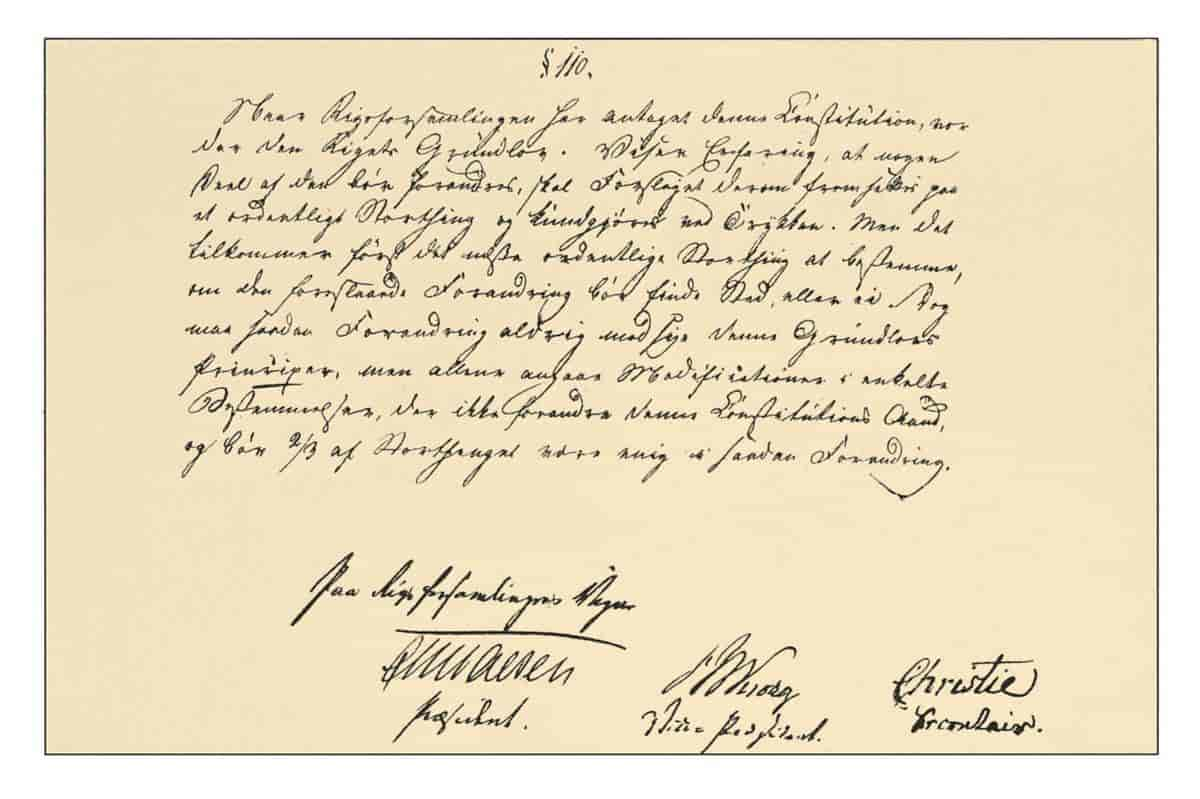 § 110.
Naar Rigsforsamlingen har antaget denne Constitution, vor
der den Rigets Grundlov. Viser Erfaring, at nogen
Deel af den bør forandres, skal Forslaget derom fremsættes paa
et ordentligt Storthing og kundgjøres ved Trykken. Men det
tilkommer først det næste ordentlige Storthing at bestemme,
om den foreslaaede Forandring bør finde Sted, eller ei Dog
maa saadan Forandring aldrig modsige denne Grundlovs
Principer, men allene angaae Modificationer i enkelte
Bestemmelser, der ikke forandre denne Constitutions Aand,
og bør 2/3 af Storthinget være enig i saadan Forandring.
Paa Rigsforsamlingens Vegne
Præsident.
Vice-Præsident.
Christie
Secretair.